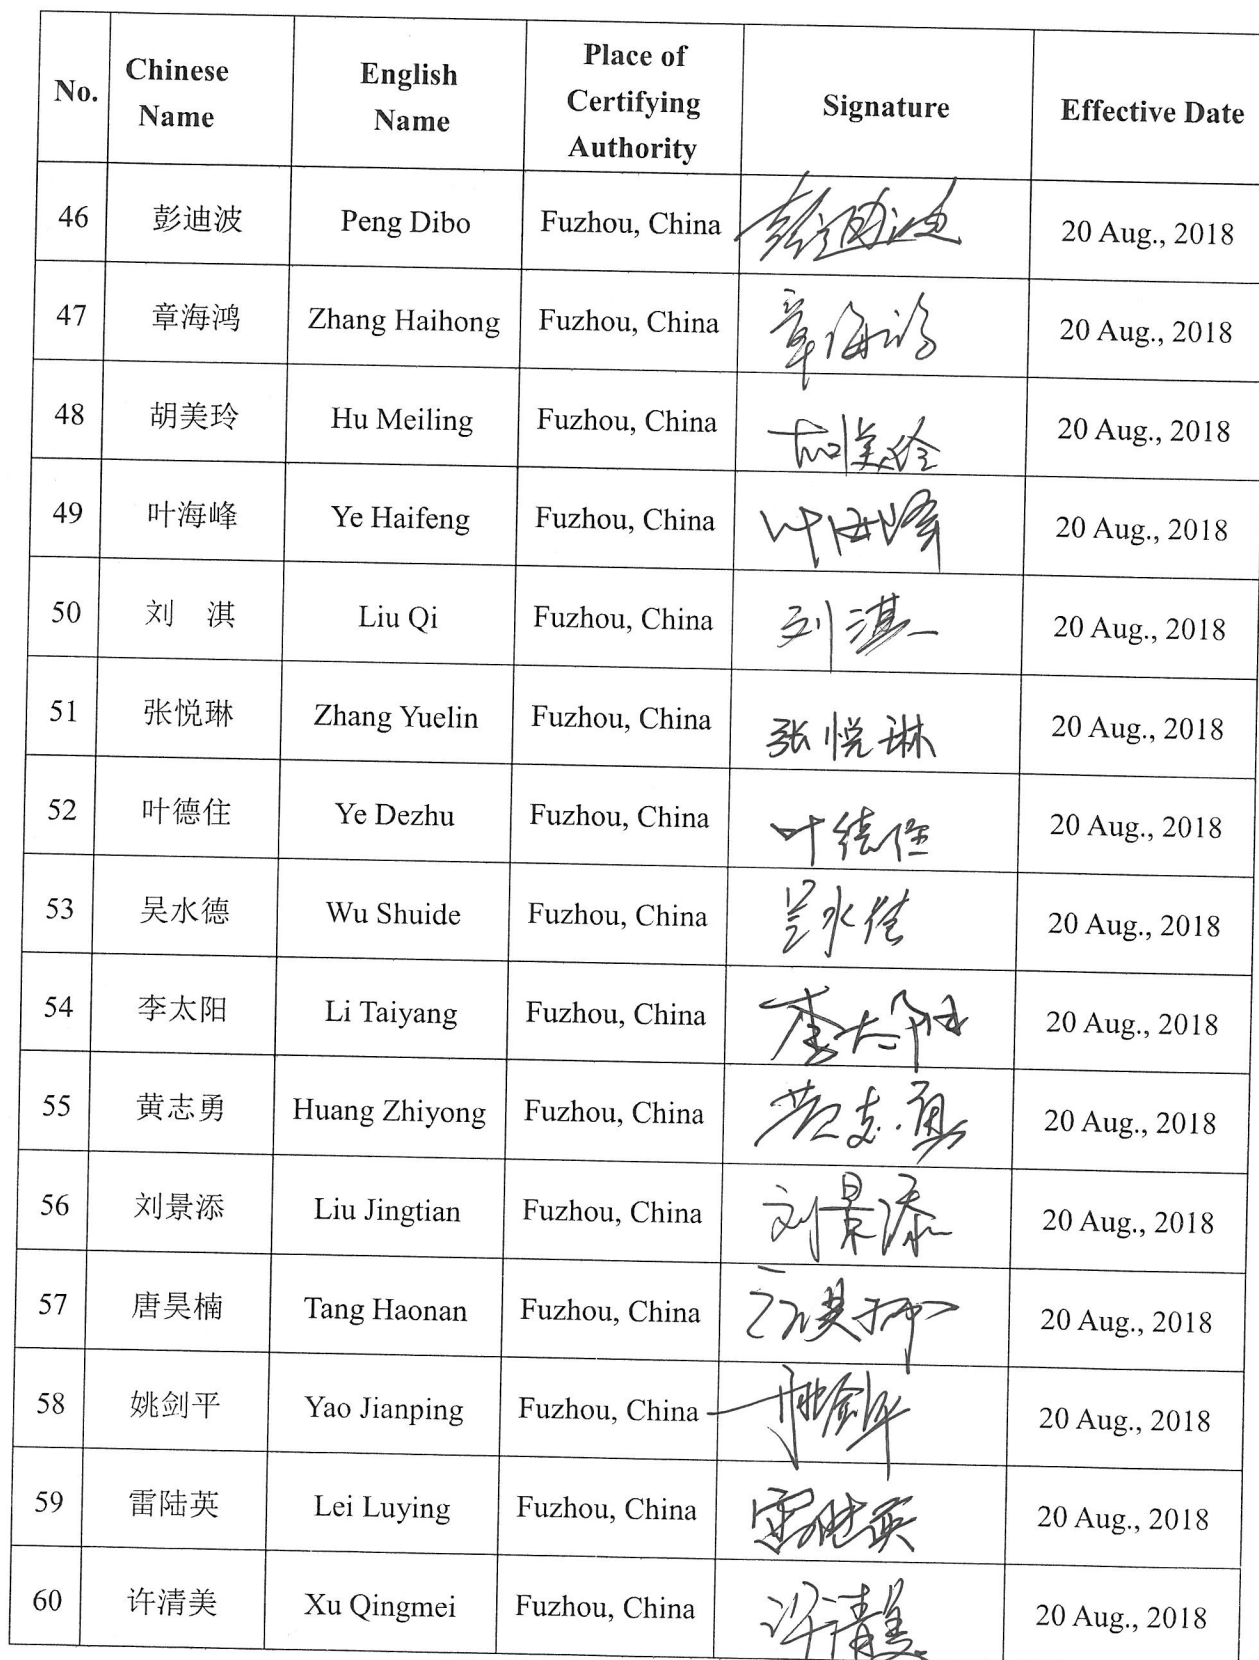 No. Chinese Name English Name Place of Certifying Authority Signature Effective Date
46 彭迪波 Peng Dibo Fuzhou, China 彭迪波 20 Aug., 2018
47 章海鸿 Zhang Haihong Fuzhou, China 章海鸿 20 Aug., 2018
48 胡美玲 Hu Meiling Fuzhou, China 胡美玲 20 Aug., 2018
49 叶海峰 Ye Haifeng Fuzhou, China 叶海峰 20 Aug., 2018
50 刘 淇 Liu Qi Fuzhou, China 刘淇 20 Aug., 2018
51 张悦琳 Zhang Yuelin Fuzhou, China 张悦琳 20 Aug., 2018
52 叶德住 Ye Dezhu Fuzhou, China 叶德住 20 Aug., 2018
53 吴水德 Wu Shuide Fuzhou, China 吴水德 20 Aug., 2018
54 李太阳 Li Taiyang Fuzhou, China 李太阳 20 Aug., 2018
55 黄志勇 Huang Zhiyong Fuzhou, China 黄志勇 20 Aug., 2018
56 刘景添 Liu Jingtian Fuzhou, China 刘景添 20 Aug., 2018
57 唐昊楠 Tang Haonan Fuzhou, China 唐昊楠 20 Aug., 2018
58 姚剑平 Yao Jianping Fuzhou, China 姚剑平 20 Aug., 2018
59 雷陆英 Lei Luying Fuzhou, China 雷陆英 20 Aug., 2018
60 许清美 Xu Qingmei Fuzhou, China 许清美 20 Aug., 2018